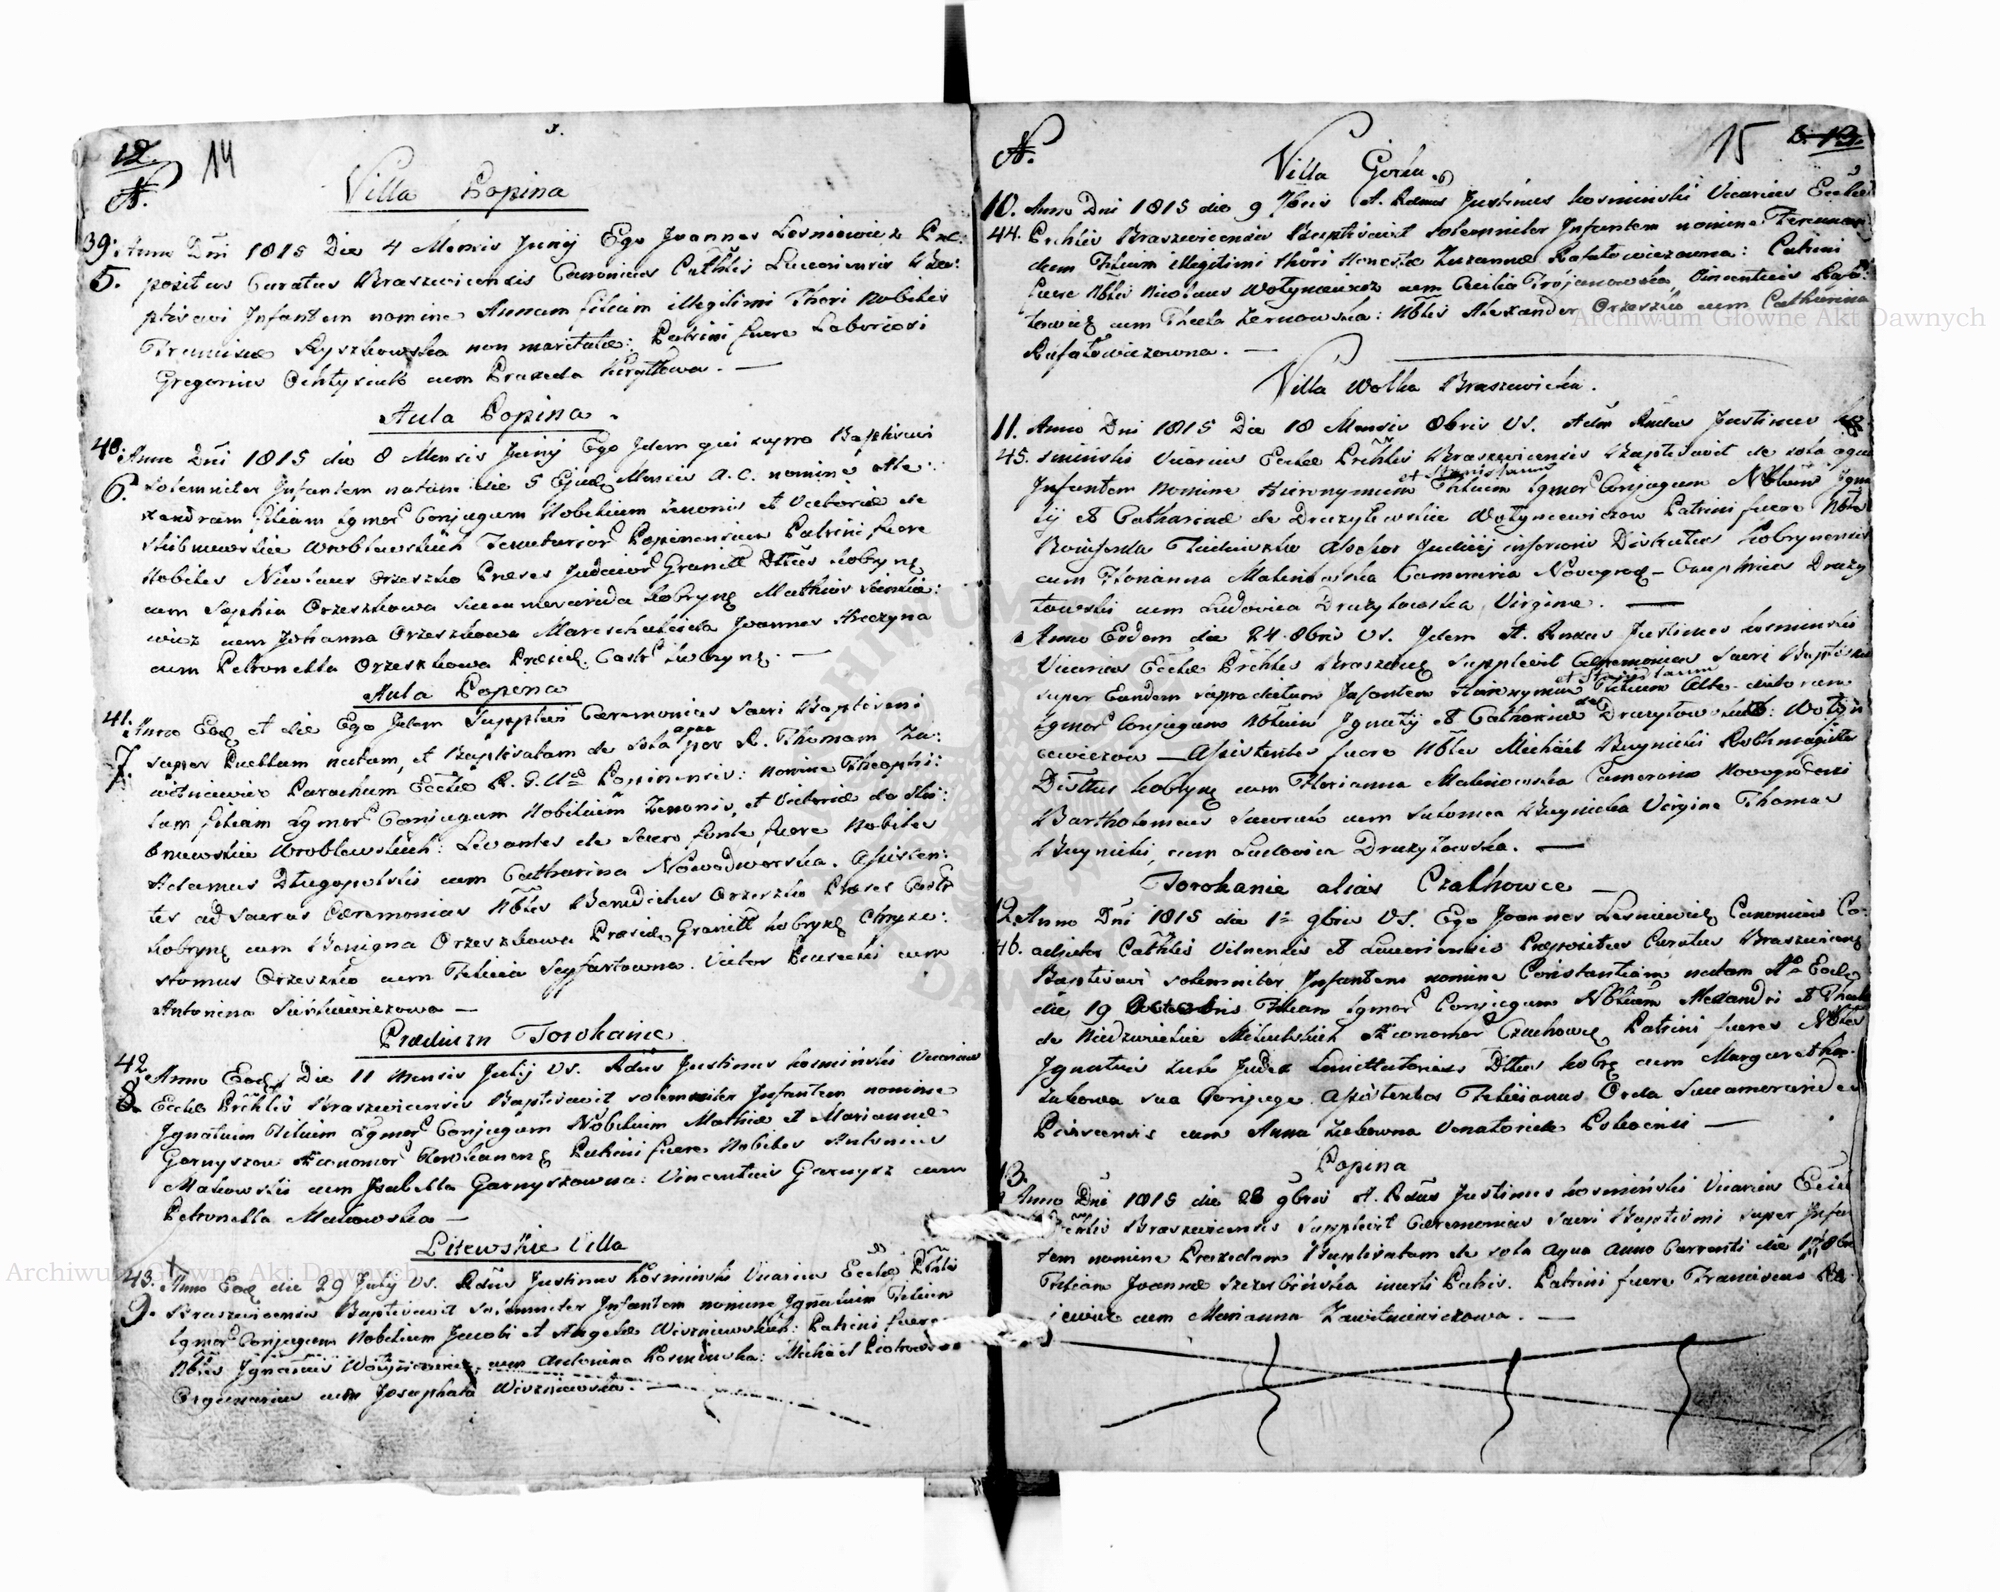 12
14
N.
Villa Popina
39. Anno Dni 1815 Die 4 Mensis Junij Ego Joannes Lesniewicz Præ:
5. positus Curatus Braszewicensis Canonicus Cathlis Luceoriensis Bap:
ptisavi Infantem nomine Annam filiam illegitimi Thori Nobilis
Franciscæ Ryszkowska non maritatæ: Patrini fuere Laboriosi
Gregorius cum Praxeda
Aula Popina.
40. Anno Dni 1815 die 8 Mensis Junij Ego Idem qui supra Baptisavi
6. solemniter Infantem natam die 5 Ejusdē Mensis A. C. nomine Ale:
xandram filiam Lgmor Conjugum Nobilium Zenonis et Victoriæ de
Wroblewskich Popinensium Patrini fuere
Nobiles Orzeszko Præses Judicior Granitt Dttus Kobrynę
cum Sophia Orzeszkowa Succamerarida Kobrynę Mathias Sienkie:
wicz cum Johanna Orzeszkowa Mareschalcida Joannes
cum Petronella Orzeszkowa Præsid. Castr Kobrynę. —
Aula Popina
41. Anno Eodē et die Ego Idem Supplevi Cæremonias Sacri Baptismi
7. super Puellam natam, et Baptisatam de sola aqua per R. Thomam Za:
witniewicz Parochum Eccłæ R. G. Uæ Popinensis: nomine Theophi:
lam filiam Lgmor Conjugum Nobilium Zenonis, et Victoriæ de
Wroblewskich: Levantes de Sacro fonte fuere Nobiles
Adamus Długopolski cum Catharina Nowodworska. Assisten:
tes ad Sacras Cæremonias Nbles Benedictus Orzeszko Præses Castr
Kobrynę cum Benigna Orzeszkowa Præsid. Granitt Kobrynę Chryzo:
stomus Orzeszko cum Felicia Seyfartowna. Victor cum
Antonina Sienkiewiczowa —
Prædium Torokanie
42. Anno Eodē Die 11 Mensis Julij VS. Rdus Justinus Kosminski Vicarius
8. Eccłæ Prchlis Braszewicensis Baptisavit solemniter Infantem nomine
Ignatium Filium Lgmor Conjugum Nobilium Mathiæ et Mariannæ
Garnyszow Æconomor Patrini fuere Nobiles Antonius
Makowski cum Isabella Garnyszowna: Vincentius Garnysz cum
Petronella Makowska —
Litewskie Villa
43. Anno Eodē die 29 Julij VS. Rdus Justinus Kosminski Vicarius Eccłæ Prchlis
9. Braszewicensis Baptisavit solemniter Infantem nomine Ignatium Filium
Lgmor Conjugum Nobilium Jacobi et Angelæ Wiszniewskich: Patrini fuere
Nbles Ignatius Wołynciewicz cum Antonina Kosminska: Michael
Organarius cum Josaphata Wiszniewska. —
N.
15
Villa Gorka
10. Anno Dni 1815 die 9 7bris A. Rdus Justinus Kosminski Vicarius Eccłæ
44. Prchlis Braszewicensis Baptisavit solemniter Infantem nomine
dum Filium illegitimi thori Honestæ Zuzannæ Rafałowiczowna: Patrini
fuere Nbles Nicolaus Wołynciewicz cum Cecilia Trojanowska, Vincentius Rafa:
łowicz cum Thecla Zernowska: Nbles Alexander Orzeszko cum Catharina
Rafałowiczowna. —
Villa Wolka Braszewicka.
11. Anno Dni 1815 Die 18 Mensis 8bris VS. Adm Rndus Justinus Ko
45. sminski Vicarius Eccłæ Prchlis Braszewicensis Baptisavit de sola aqua
Infantem nomine Hieronymum et Stanislaum Filium Lgmor Conjugum Nblium Igna
tij et Catharinæ de Drużyłowskie Wołynciewiczow Patrini fuere Nbles
Bonifacius Assessor Judicij inferioris Districtus Kobrynensis
cum Florianna Malinowska Cameraria Novogrodę — Onuphrius Druży
łowski cum Ludovica Drużyłowska Virgine. —
Anno Eodem die 24 8bris VS. Idem A. Rndus Justinus Kosminski
Vicarius Eccłæ Prchlis Braszewicę Supplevit Cæremonias Sacri Baptismi
super Eundem supradictum Infantem Hieronymum et Stanislaum Filium
Lgmor Conjugum Nblium Ignatij et Catharinæ de Drużyłowskich: Wołyn
ciewiczow — Assistentes fuere Nbles Michael Buynicki Rothmagister
Disttus Kobrynę cum Florianna Malinowska Cameraria Novogrodeni
Bartholomeus cum Salomea Buynicka Virgine Thomas
Buynicki, cum Ludovica Drużyłowska. —
Torokanie alias Czalhowce —
12. Anno Dni 1815 die 1a 9bris VS. Ego Joannes Lesniewicz Canonicus Co:
46. adjutor Cathlis Vilnensis et Luceoriensis Præpositus Curatus Braszewicenę
Baptisavi solemniter Infantem nomine Constantiam natam Ao Eodē
die 19 Octobris Filiam Lgmor Conjugum Nblium Alexandri et Theclæ
de Niedzwieckie Mikulskich Æconomor Patrini fuere Nbles
Ignatius Judex Dttus Kobrę cum Margaretha
sua Conjuge. Assistentes Felicianus Orda Succamerarides
Pinscensis cum Anna Venatoride —
Popina
13. Anno Dni 1815 die 28 9bris A. Rdus Justinus Kosminski Vicarius Eccłæ
Prchlis Braszewicensis Supplevit Cæremonias Sacri Baptismi super Infan
tem nomine Praxedam Baptisatam de sola aqua anno Currenti die 17 8bris
Filiam Joannæ incerti Patris. Patrini fuere Franciscus
cum Marianna Zawitniewiczowa. —
Archiwum Główne Akt Dawnych
Archiwum Główne Akt Dawnych